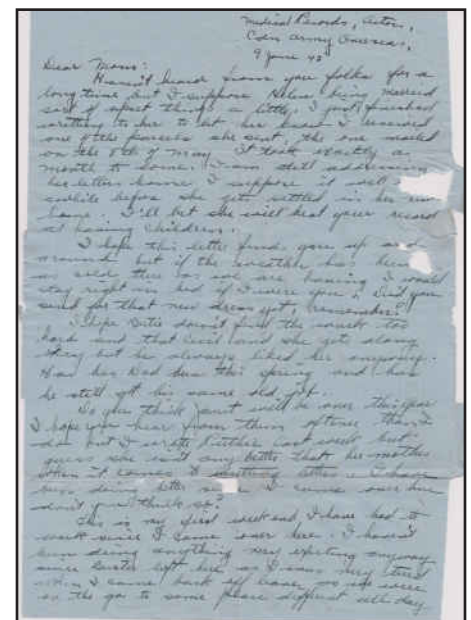 Medical Records, Actons,
Cdn Army Overseas,
9 June 43
Dear Mom:
Haven't heard from you folks for a
long time but I suppose Helen being married
sort of upset things a little. I just finished
writing to her to let her know I received
one of the parcels she sent, the one mailed
on the 8th of May. It took exactly a
month to come. I am still addressing
her letters home. I suppose it will
awhile before she gets settled in her own
home. I'll bet she will beat your record
at having children.
I hope this letter finds you up and
around but if the weather has been
as cold there as we are having I would
stay right in bed if I were you. Did you
send for that new dress yet, remember?
I hope doesn't find the work too
hard and that Cecil and she get along
okay but he always liked her anyway.
How has Dad been this spring and has
he still got his same old job.
Do you think will be over this year
I hope you hear from them oftener than I
do but I wrote last week but
guess she isn't any better than her mother
when it comes to writing letters. I have
been doing better since I came over here
don't you think so?
This is my first weekend I have had to
work since I came over here. I haven't
been doing anything very exciting anyway
since left here as I was very tired
when I came back off leave as we were
on the go to some place different all day